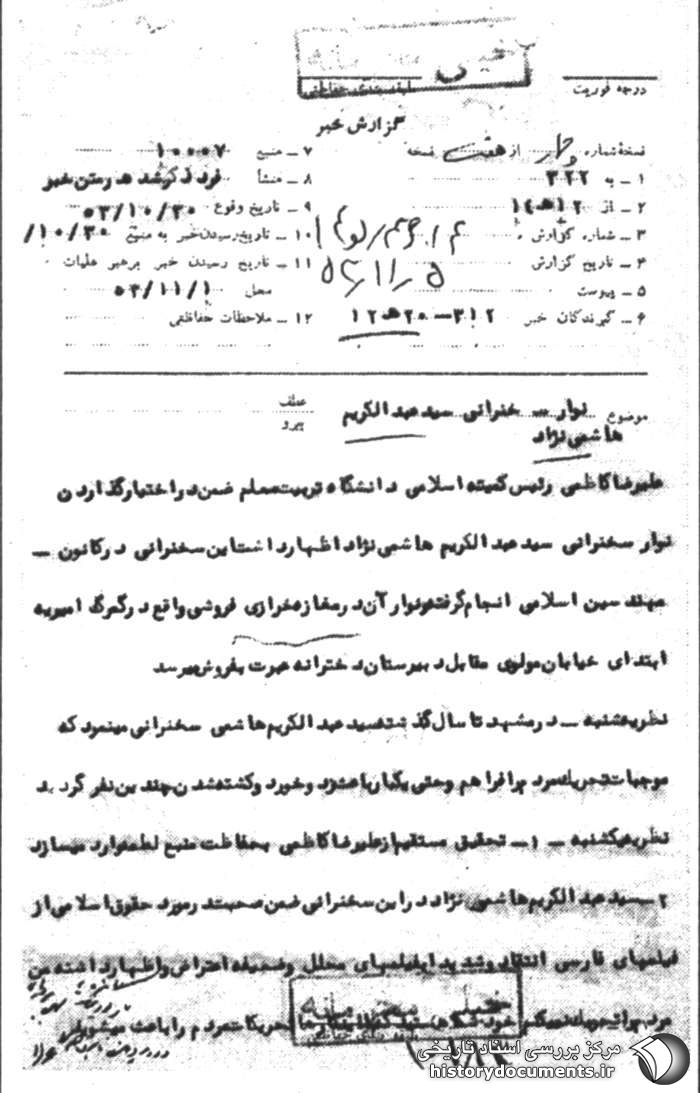 خیلی محرمانه
طبقه‌بندی حفاظتی
درجه فوریت
گزارش خبر
نسخهٔ شماره چهار از هفت نسخه
۱ ـ به ۳۲۲
۲ ـ از ۱۲ ه‍ ۱۴
۳ ـ شماره گزارش
۴ ـ تاریخ گزارش
۵ ـ پیوست
۶ ـ گیرندگان خبر ۳۱۲ ـ ۲۰ ه‍ ۱۲
۷ ـ منبع ۱۰۰۰۷
۸ ـ منشأ فرد ذکر شده در متن خبر
۹ ـ تاریخ وقوع ۵۳/۱۰/۳۰
۱۰ ـ تاریخ رسیدن خبر به منبع ۱۰/۳۰/
۱۱ ـ تاریخ رسیدن خبر برهبر عملیات
محل ۵۳/۱۱/۱
۱۲ ـ ملاحظات حفاظتی
موضوع نوار ـ سخنرانی سید عبدالکریم
هاشمی نژاد
عطف
پیرو
علیرضا کاظمی رئیس کمیته اسلامی دانشگاه تربیت معلم ضمن در اختیار گذاردن
نوار سخنرانی سید عبدالکریم هاشمی نژاد اظهار داشت این سخنرانی در کانون ـ
مهندسین اسلامی انجام گرفته و نوار آن در مغازه خرازی فروشی واقع در گمرک امیریه
ابتدای خیابان مولوی مقابل دبیرستان دخترانه عبرت بفروش میرسد
نظریه شنبه ـ در مشهد تا سال گذشته سید عبدالکریم هاشمی سخنرانی مینمود که
موجبات تحریک مردم را فراهم و حتی یکبار باعث زد و خورد و کشته شدن چندین نفر گردید
نظریه یکشنبه ـ ۱ ـ تحقیق مستقیم از علیرضا کاظمی بحفاظت منبع لطمه وارد میسازد
۲ ـ سید عبدالکریم هاشمی نژاد در این سخنرانی ضمن صحبت در مورد حقوق اسلامی از
فیلمهای فارسی انتقاد و شدیدا بفیلمهای محلل و ضعیفه اعتراض و اظهار داشته من
تحریکات مردم را باعث میشوند
خیلی محرمانه
مرکز بررسی اسناد تاریخی
historydocuments.ir